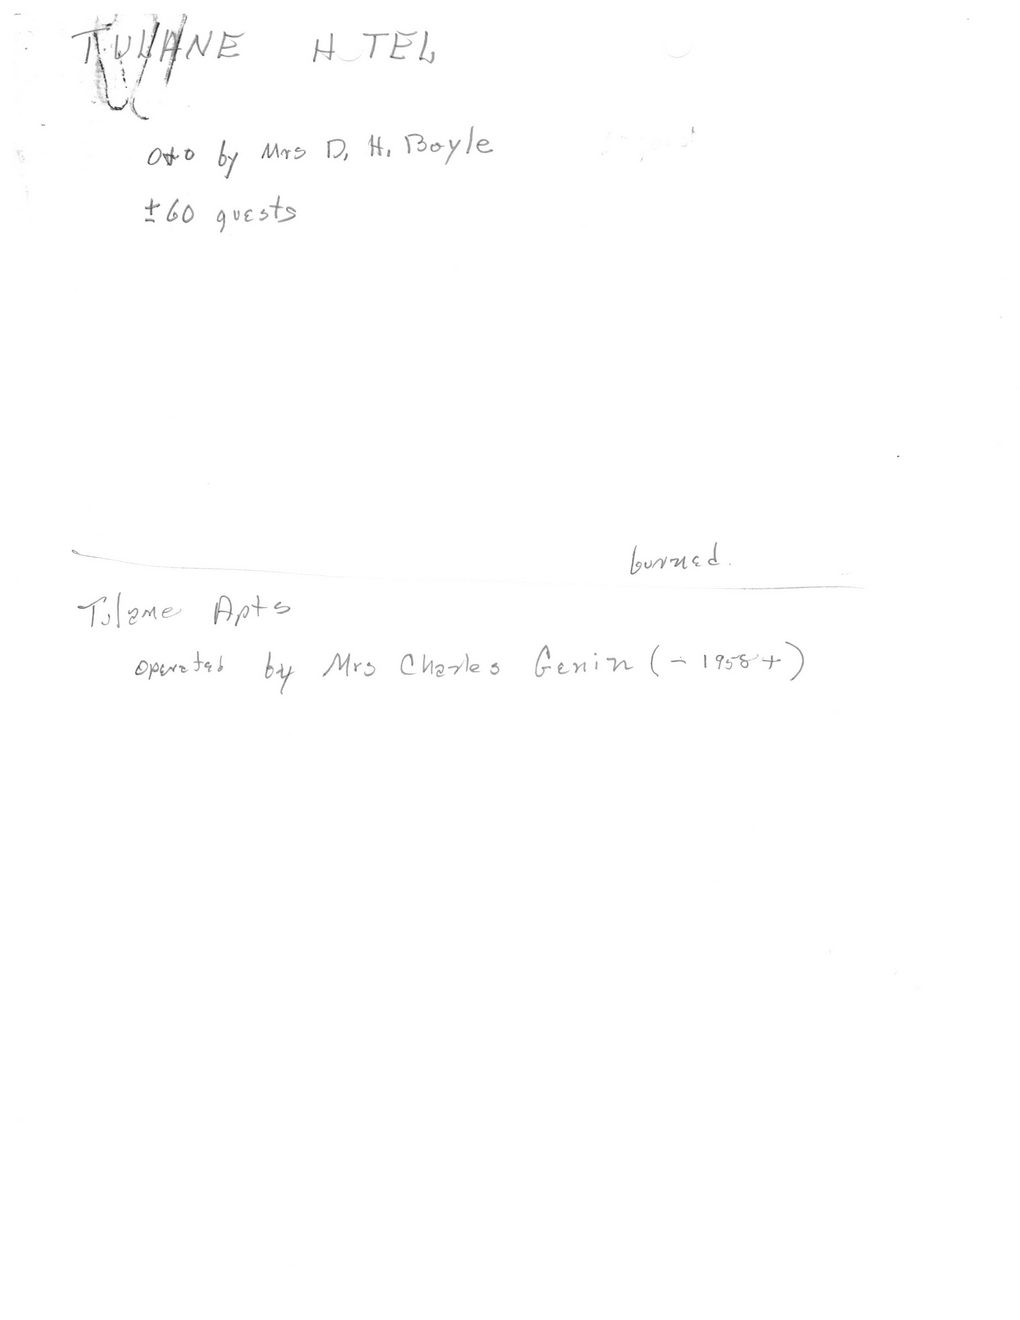 TULANE HOTEL
O+O by Mrs D. H. Boyle
±60 guests
burned.
Tulane Apts
operated by Mrs Charles Genin (- 1958+)